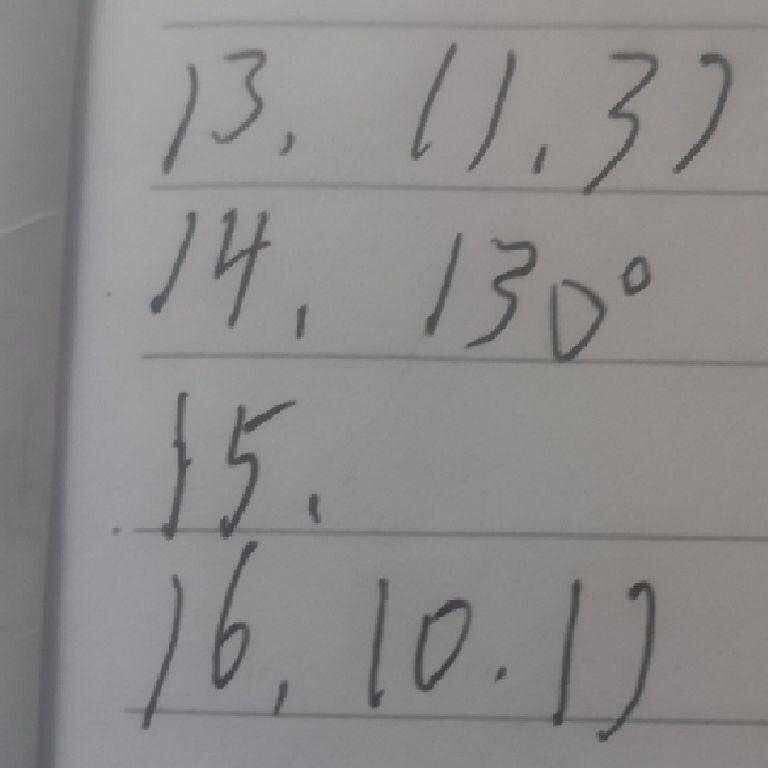 13, (1,3)
14, 130°
15,
16, 10.17